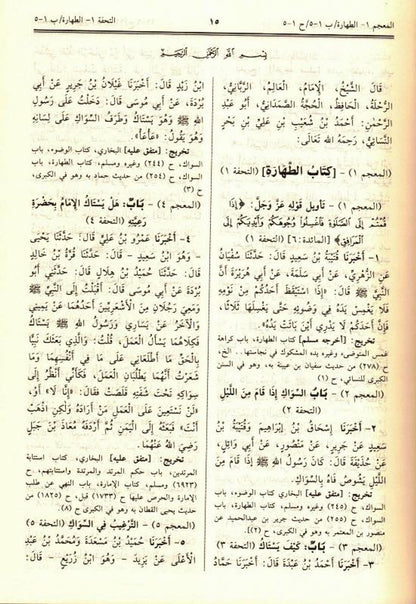 المعجم ١- الطهارة/ب ١-٥/ح ١-٥
١٥
التحفة ١- الطهارة/ب ١-٥
بِسْمِ اللَّهِ الرَّحْمَنِ الرَّحِيمِ
قَالَ الشَّيْخُ، الإِمَامُ، الْعَالِمُ، الرَّبَّانِيُّ،
الرُّحْلَةُ، الْحَافِظُ، الْحُجَّةُ الصَّمَدَانِيُّ، أَبُو عَبْدِ
الرَّحْمٰنِ: أَحْمَدُ بْنُ شُعَيْبِ بْنِ عَلِيِّ بْنِ بَحْرٍ
النَّسَائِيُّ، رَحِمَهُ اللهُ تَعَالَى:
(المعجم ١) - [كِتَابُ الطَّهَارَةِ] (التحفة ١)
(المعجم ١) - تَأْوِيلُ قَوْلِهِ عَزَّ وَجَلَّ: ﴿إِذَا
قُمْتُمْ إِلَى الصَّلَوٰةِ فَاغْسِلُوا وُجُوهَكُمْ وَأَيْدِيَكُمْ إِلَى
الْمَرَافِقِ﴾ [المائدة: ٦] (التحفة ١)
١- أَخْبَرَنَا قُتَيْبَةُ بْنُ سَعِيدٍ قَالَ: حَدَّثَنَا سُفْيَانُ
عَنِ الزُّهْرِيِّ، عَنْ أَبِي سَلَمَةَ، عَنْ أَبِي هُرَيْرَةَ أَنَّ
النَّبِيَّ ﷺ قَالَ: «إِذَا اسْتَيْقَظَ أَحَدُكُمْ مِنْ نَوْمِهِ
فَلَا يَغْمِسْ يَدَهُ فِي وَضُوئِهِ حَتَّى يَغْسِلَهَا ثَلَاثًا،
فَإِنَّ أَحَدَكُمْ لَا يَدْرِي أَيْنَ بَاتَتْ يَدُهُ».
تخريج: [أخرجه مسلم] الطهارة، باب كراهة
غمس المتوضىء وغيره يده المشكوك في نجاستها . . . الخ،
ح (٢٧٨) من حديث سفيان بن عيينة به، وهو في السنن
الكبرى للنسائي، ح (١)
(المعجم ٢) - بَابُ السِّوَاكِ إِذَا قَامَ مِنَ اللَّيْلِ
(التحفة ٢)
٢- أَخْبَرَنَا إِسْحَاقُ بْنُ إِبْرَاهِيمَ وَقُتَيْبَةُ بْنُ
سَعِيدٍ عَنْ جَرِيرٍ، عَنْ مَنْصُورٍ، عَنْ أَبِي وَائِلٍ،
عَنْ حُذَيْفَةَ قَالَ: كَانَ رَسُولُ اللهِ ﷺ إِذَا قَامَ مِنَ
اللَّيْلِ يَشُوصُ فَاهُ بِالسِّوَاكِ.
تخريج: [متفق عليه] البخاري، كتاب الوضوء، باب
السواك، ح (٢٤٥) وغيره ومسلم، كتاب الطهارة، باب
السواك، ح (٢٥٥) من حديث جرير بن عبدالحميد عن
منصور بن المعتمر به وهو في الكبرى، ح (٢).
(المعجم ٣) - بَابٌ: كَيْفَ يَسْتَاكُ (التحفة ٣)
٣- أَخْبَرَنَا أَحْمَدُ بْنُ عَبْدَةَ قَالَ: أَخْبَرَنَا حَمَّادُ
ابْنُ زَيْدٍ قَالَ: أَخْبَرَنَا غَيْلَانُ بْنُ جَرِيرٍ عَنْ أَبِي
بُرْدَةَ، عَنْ أَبِي مُوسَى قَالَ: دَخَلْتُ عَلَى رَسُولِ
اللهِ ﷺ وَهُوَ يَسْتَاكُ وَطَرَفُ السِّوَاكِ عَلَى لِسَانِهِ
وَهُوَ يَقُولُ: «عَأْعَأْ».
تخريج: [متفق عليه] البخاري، كتاب الوضوء، باب
السواك، ح (٢٤٤) وغيره ومسلم، كتاب الطهارة، باب
السواك، ح (٢٥٤) من حديث حماد به وهو في الكبرى،
ح (٣)
(المعجم ٤) - بَابٌ: هَلْ يَسْتَاكُ الإِمَامُ بِحَضْرَةِ
رَعِيَّتِهِ (التحفة ٤)
٤- أَخْبَرَنَا عَمْرُو بْنُ عَلِيٍّ قَالَ: حَدَّثَنَا يَحْيَى
- وَهُوَ ابْنُ سَعِيدٍ - قَالَ: حَدَّثَنَا قُرَّةُ بْنُ خَالِدٍ
قَالَ: حَدَّثَنَا حُمَيْدُ بْنُ هِلَالٍ قَالَ: حَدَّثَنِي أَبُو
بُرْدَةَ عَنْ أَبِي مُوسَى قَالَ: أَقْبَلْتُ إِلَى النَّبِيِّ ﷺ
وَمَعِيَ رَجُلَانِ مِنَ الأَشْعَرِيِّينَ أَحَدُهُمَا عَنْ يَمِينِي
وَالآخَرُ عَنْ يَسَارِي وَرَسُولُ اللهِ ﷺ يَسْتَاكُ
فَكِلَاهُمَا يَسْأَلُ الْعَمَلَ، قُلْتُ: وَالَّذِي بَعَثَكَ نَبِيًّا
بِالْحَقِّ مَا أَطْلَعَانِي عَلَى مَا فِي أَنْفُسِهِمَا وَمَا
شَعَرْتُ أَنَّهُمَا يَطْلُبَانِ الْعَمَلَ، فَكَأَنِّي أَنْظُرُ إِلَى
سِوَاكِهِ تَحْتَ شَفَتِهِ قَلَصَتْ فَقَالَ: «إِنَّا لَا - أَوْ،
لَنْ نَسْتَعِينَ عَلَى الْعَمَلِ مَنْ أَرَادَهُ وَلٰكِنِ اذْهَبْ
أَنْتَ» فَبَعَثَهُ إِلَى الْيَمَنِ ثُمَّ أَرْدَفَهُ مُعَاذُ بْنُ جَبَلٍ
رَضِيَ اللهُ عَنْهُمَا.
تخريج: [متفق عليه] البخاري، كتاب استتابة
المرتدين، باب حكم المرتد والمرتدة واستتابتهم، ح
(٦٩٢٣) ومسلم، كتاب الإمارة، باب النهي عن طلب
الإمارة والحرص عليها ح (١٧٣٣) قبل، ح (١٨٢٥) من
حديث يحيى القطان به وهو في الكبرى، ح (٨)
(المعجم ٥) - التَّرْغِيبُ فِي السِّوَاكِ (التحفة ٥)
٥- أَخْبَرَنَا حُمَيْدُ بْنُ مَسْعَدَةَ وَمُحَمَّدُ بْنُ عَبْدِ
الأَعْلَى عَنْ يَزِيدَ - وَهُوَ ابْنُ زُرَيْعٍ - قَالَ: